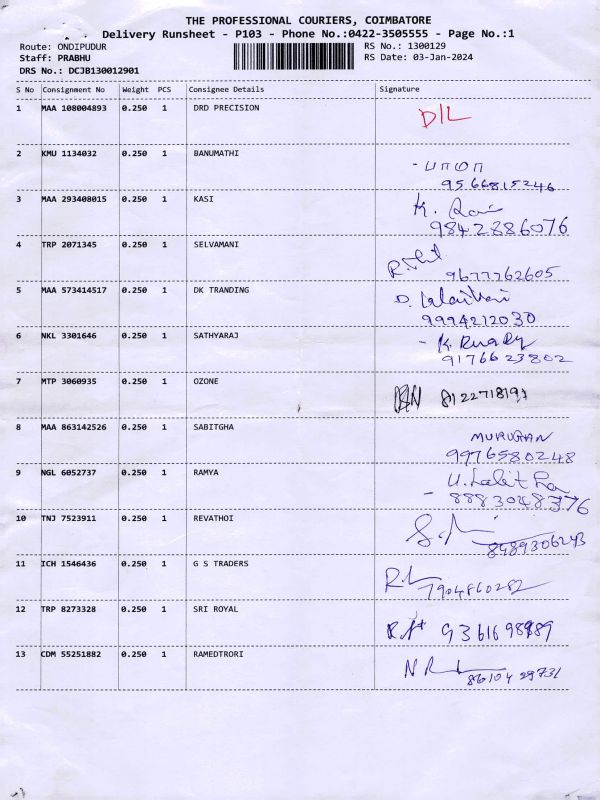 THE PROFESSIONAL COURIERS, COIMBATORE
Delivery Runsheet - P103 - Phone No.:0422-3505555 - Page No.:1
Route: ONDIPUDUR RS No.: 1300129
Staff: PRABHU RS Date: 03-Jan-2024
DRS No.: DCJB130012901
S No Consignment No Weight PCS Consignee Details Signature
1 MAA 108004893 0.250 1 DRD PRECISION D/L
2 KMU 1134032 0.250 1 BANUMATHI - பானு
9566815246
3 MAA 293408015 0.250 1 KASI K.
9842886076
4 TRP 2071345 0.250 1 SELVAMANI
9677262605
5 MAA 573414517 0.250 1 DK TRANDING D.
9994212030
6 NKL 3301646 0.250 1 SATHYARAJ - K.
9176623802
7 MTP 3060935 0.250 1 OZONE
8 MAA 863142526 0.250 1 SABITGHA MURUGAN
9976580248
9 NGL 6052737 0.250 1 RAMYA
- 8883048376
10 TNJ 7523911 0.250 1 REVATHOI
8489306243
11 ICH 1546436 0.250 1 G S TRADERS
7904860282
12 TRP 8273328 0.250 1 SRI ROYAL
13 CDM 55251882 0.250 1 RAMEDTRORI